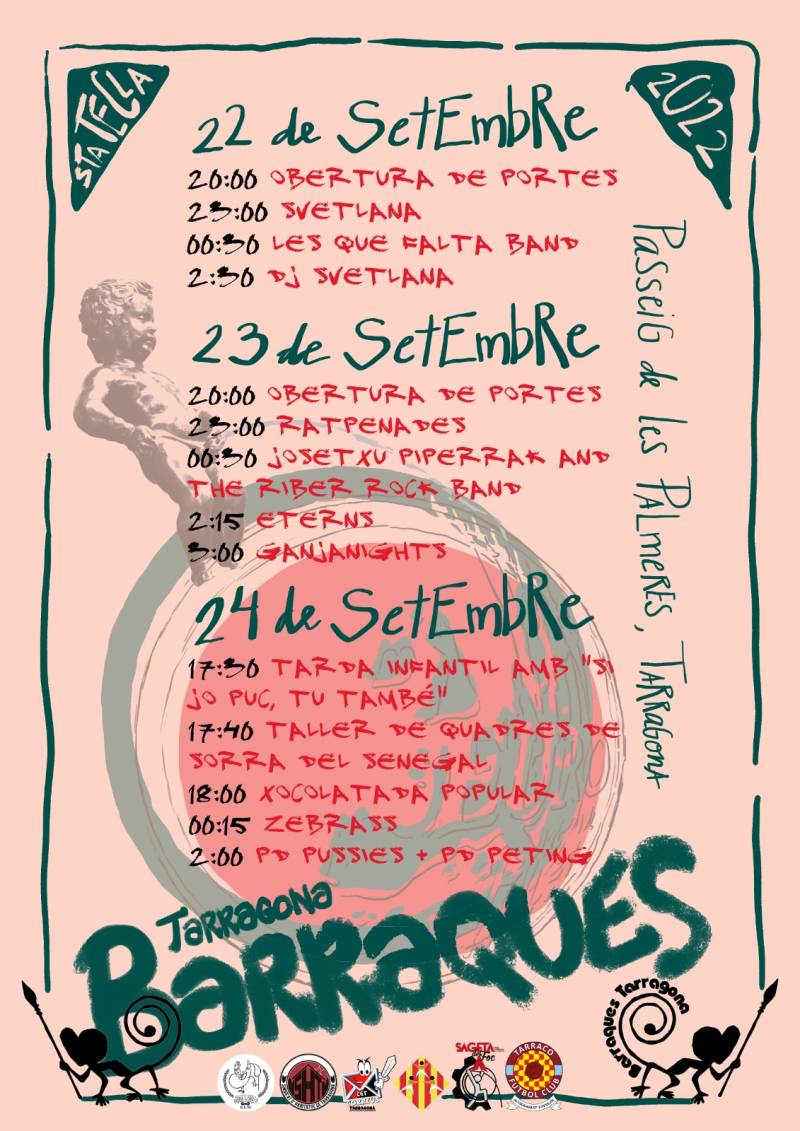 STA TECLA
2022
22 de SetEmbRe
20:00 OBERTURA DE PORTES
23:00 SVETLANA
00:30 LES QUE FALTA BAND
2:30 DJ SVETLANA
23 de SetEmbRe
20:00 OBERTURA DE PORTES
23:00 RATPENADES
00:30 JOSETXU PIPERRAK AND
THE RIBER ROCK BAND
2:15 ETERNS
3:00 GANJANIGHTS
24 de SetEmbRe
17:30 TARDA INFANTIL AMB "SI
JO PUC, TU TAMBÉ"
17:40 TALLER DE QUADRES DE
SORRA DEL SENEGAL
18:00 XOCOLATADA POPULAR
00:15 ZEBRASS
2:00 PD PUSSIES + PD PETING
PasseiG de les PALmeRES, TARRagonA
TARRAGONA
BARRAQUES
Barraques Tarragona
SAGETA
de Foc
TARRACO
FUTBOL CLUB